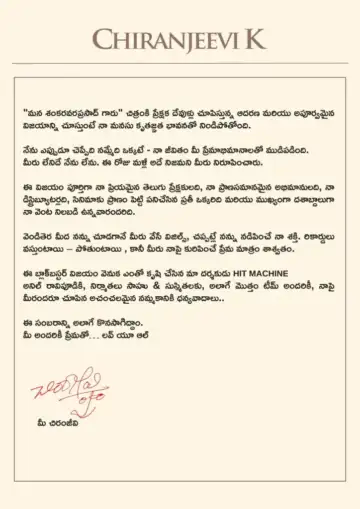 CHIRANJEEVI K
"మన శంకరవరప్రసాద్ గారు" చిత్రంకి ప్రేక్షక దేవుళ్లు చూపిస్తున్న ఆదరణ మరియు అపూర్వమైన
విజయాన్ని చూస్తుంటే నా మనసు కృతజ్ఞత భావనతో నిండిపోతోంది.
నేను ఎప్పుడూ చెప్పేది నమ్మేది ఒక్కటే - నా జీవితం మీ ప్రేమాభిమానాలతో ముడిపడింది.
మీరు లేనిదే నేను లేను. ఈ రోజు మళ్లీ అదే నిజమని మీరు నిరూపించారు.
ఈ విజయం పూర్తిగా నా ప్రియమైన తెలుగు ప్రేక్షకులది, నా ప్రాణసమానమైన అభిమానులది, నా
డిస్ట్రిబ్యూటర్లది, సినిమాకు ప్రాణం పెట్టి పనిచేసిన ప్రతీ ఒక్కరిది మరియు ముఖ్యంగా దశాబ్దాలుగా
నా వెంట నిలబడి ఉన్నవారందరిది.
వెండితెర మీద నన్ను చూడగానే మీరు వేసే విజిల్స్, చప్పట్లే నన్ను నడిపించే నా శక్తి. రికార్డులు
వస్తుంటాయి – పోతుంటాయి , కానీ మీరు నాపై కురిపించే ప్రేమ మాత్రం శాశ్వతం.
ఈ బ్లాక్‌బస్టర్ విజయం వెనుక ఎంతో కృషి చేసిన మా దర్శకుడు HIT MACHINE
అనిల్ రావిపూడికి, నిర్మాతలు సాహు & సుస్మితలకు, అలాగే మొత్తం టీమ్ అందరికీ, నాపై
మీరందరూ చూపిన అచంచలమైన నమ్మకానికి ధన్యవాదాలు..
ఈ సంబరాన్ని అలాగే కొనసాగిద్దాం.
మీ అందరికీ ప్రేమతో... లవ్ యూ ఆల్
మీ చిరంజీవి